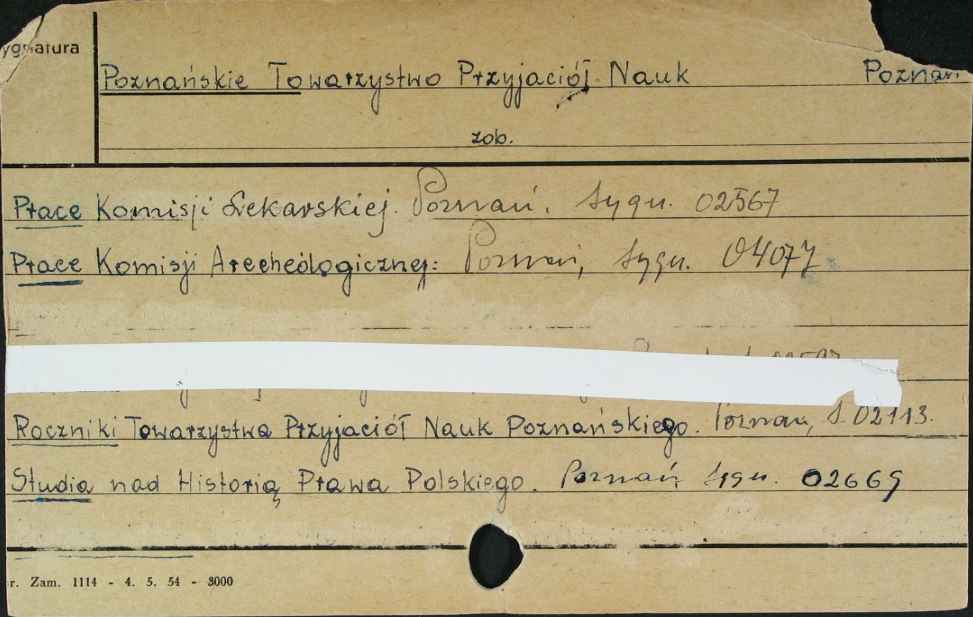 ygnatura
Poznańskie Towarzystwo Przyjaciół Nauk Poznań
zob.
Prace Komisji Lekarskiej. Poznań. Sygn. 02567
Prace Komisji Archeologicznej: Poznań, Sygn. 04077
Roczniki Towarzystwa Przyjaciół Nauk Poznańskiego. Poznań, S. 02113.
Studia nad Historią Prawa Polskiego. Poznań Sygn. 02669
r. Zam. 1114 - 4. 5. 54 - 3000